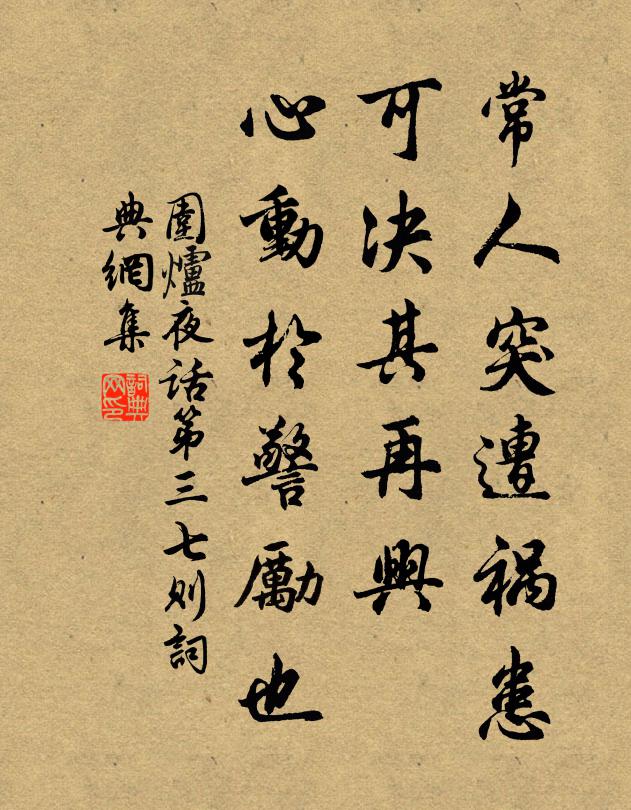 常人突遭祸患
可决其再興
心動於警勵也
圍爐夜话第三七则詞
典網集
詞典網印